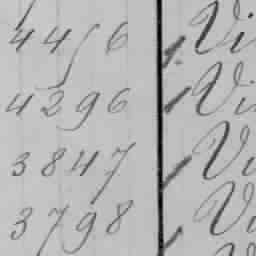 4456 Vi
4296 Vi
3847 Vi
3798 Vi